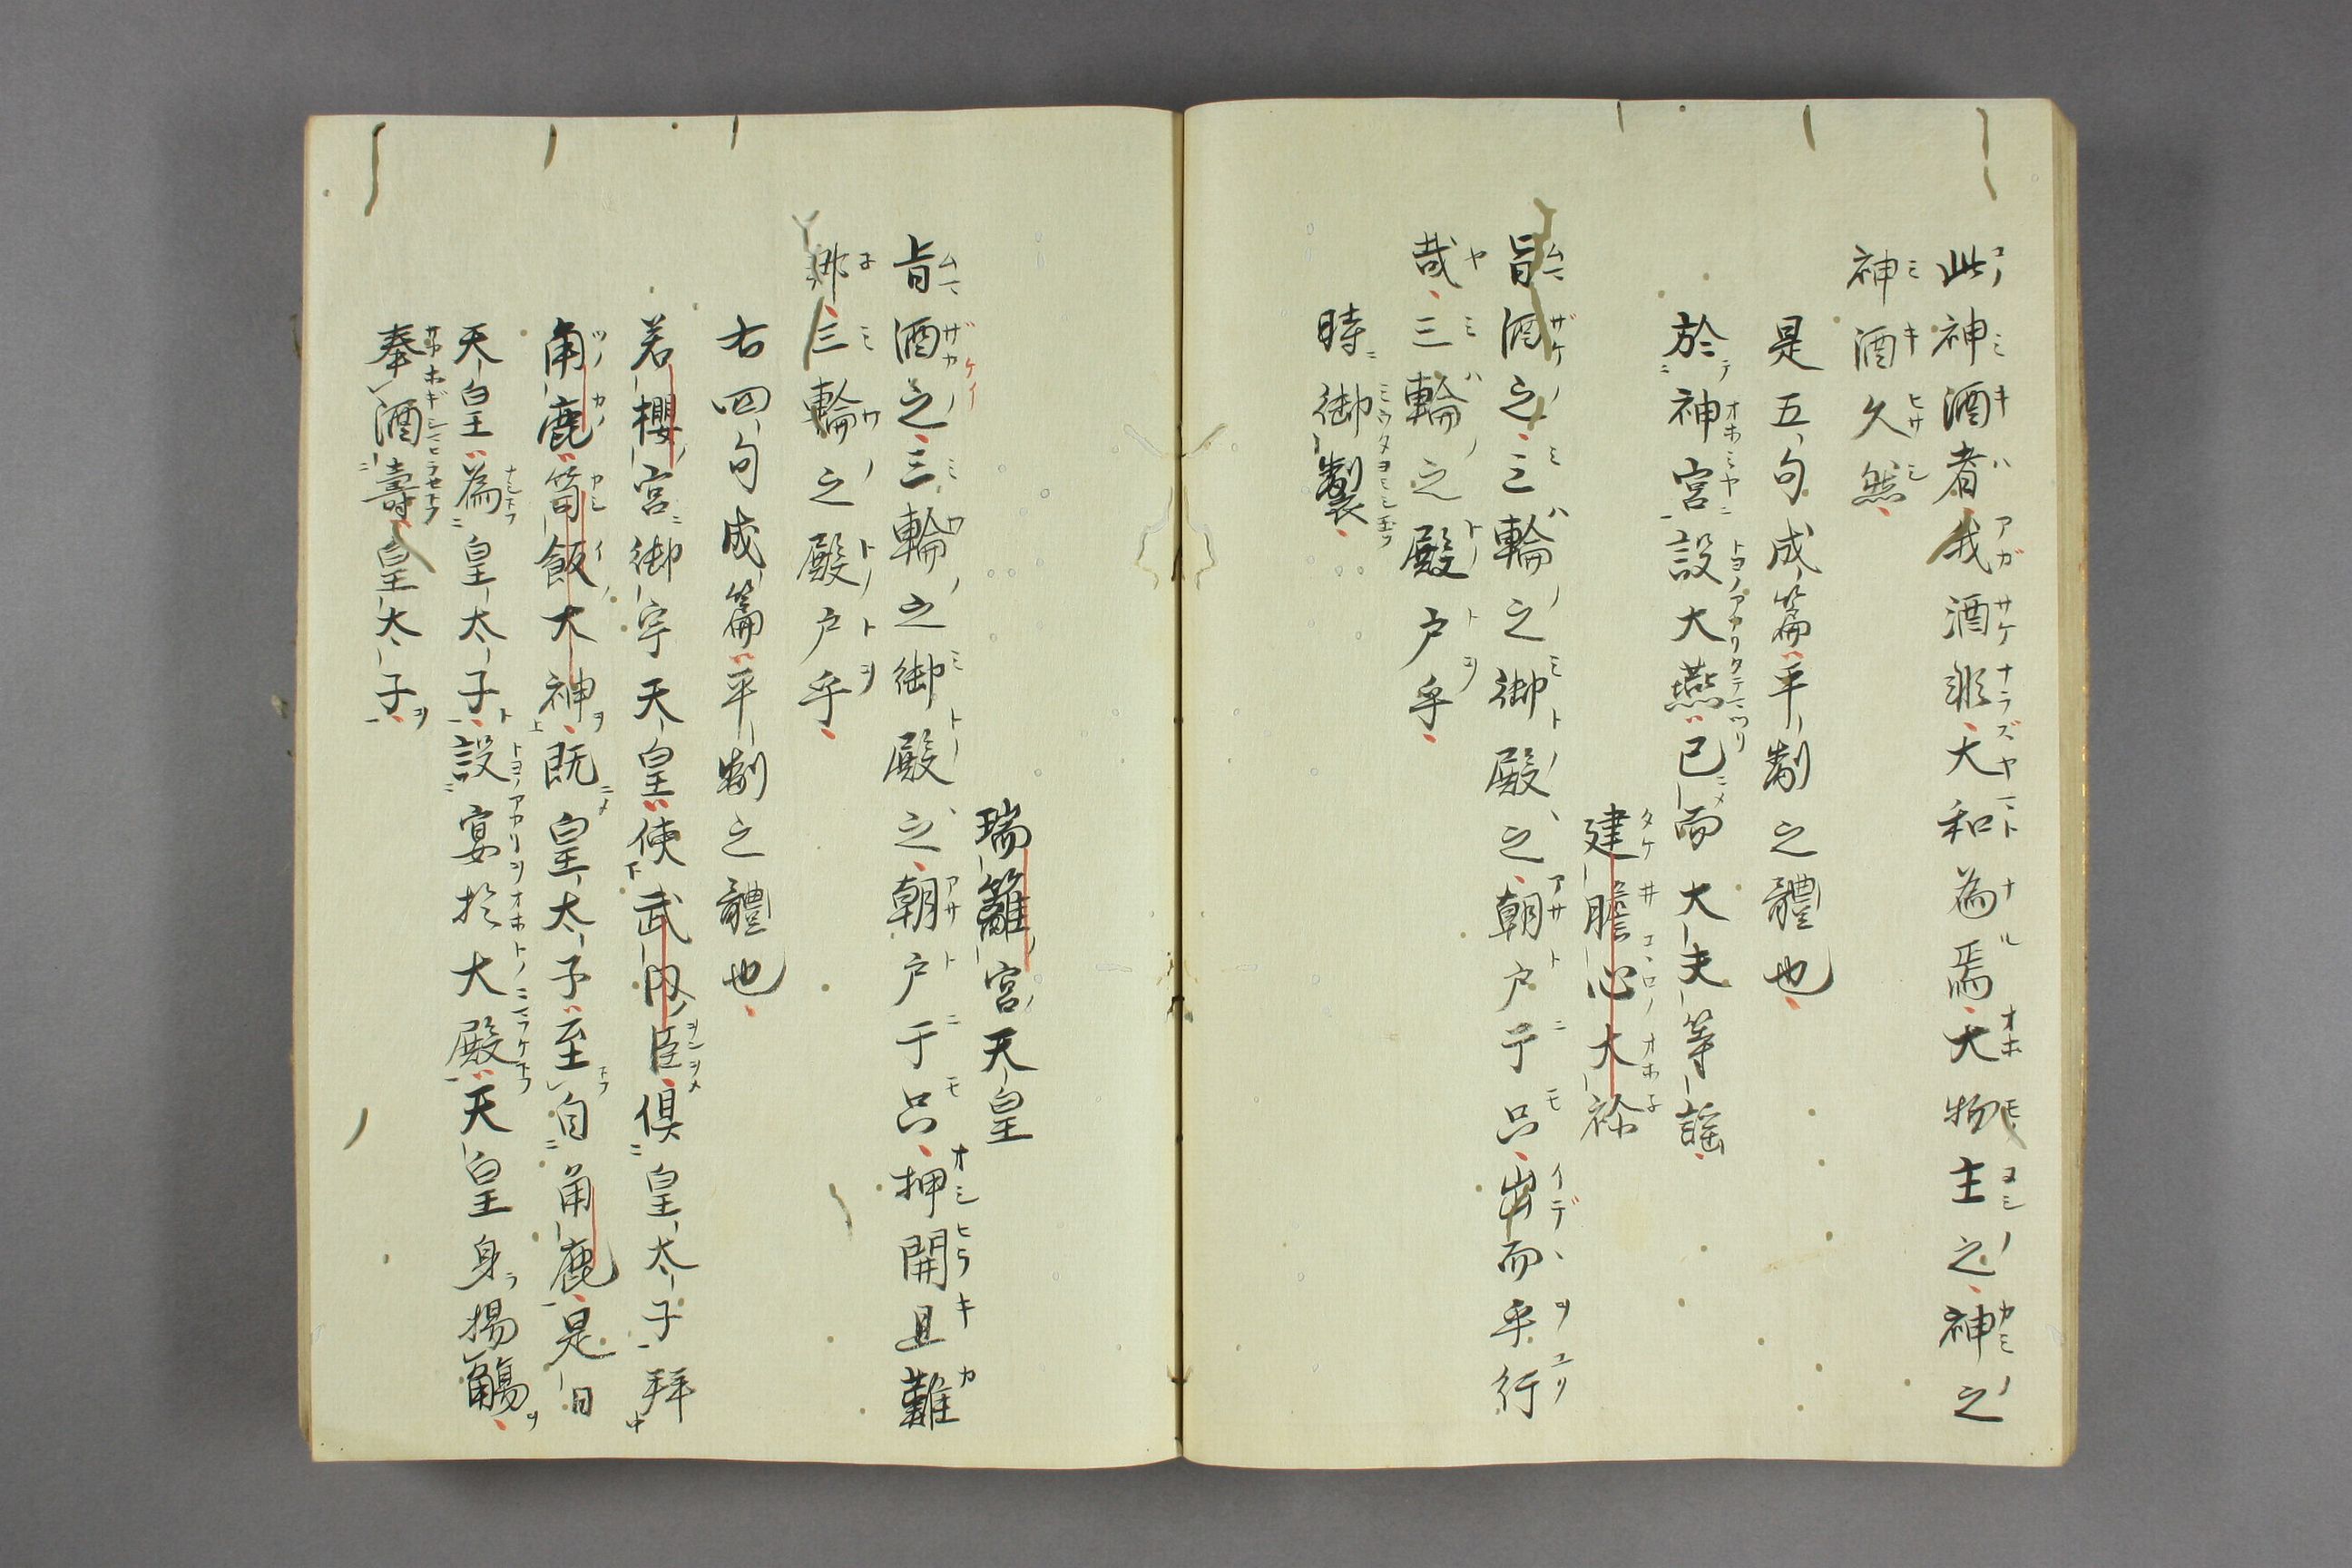 此神酒者我酒非大和為焉大物主之神之
神酒久然
是五句成篇平制之體也
於神宮設大燕已而大夫等謡
建膽心大祢
旨酒之三輪之御殿之朝戸于呂出而乎行
哉三輪之殿戸乎
時御製
瑞籬宮天皇
旨酒之三輪之御殿之朝戸于呂押開且難
郷三輪之殿戸乎
右四句成篇平制之體也
若櫻宮御宇天皇使武内臣倶皇太子拜
角鹿笥飯大神既皇太子至自角鹿是日
天皇為皇太子設宴於大殿天皇身揚觴
奉酒壽皇太子